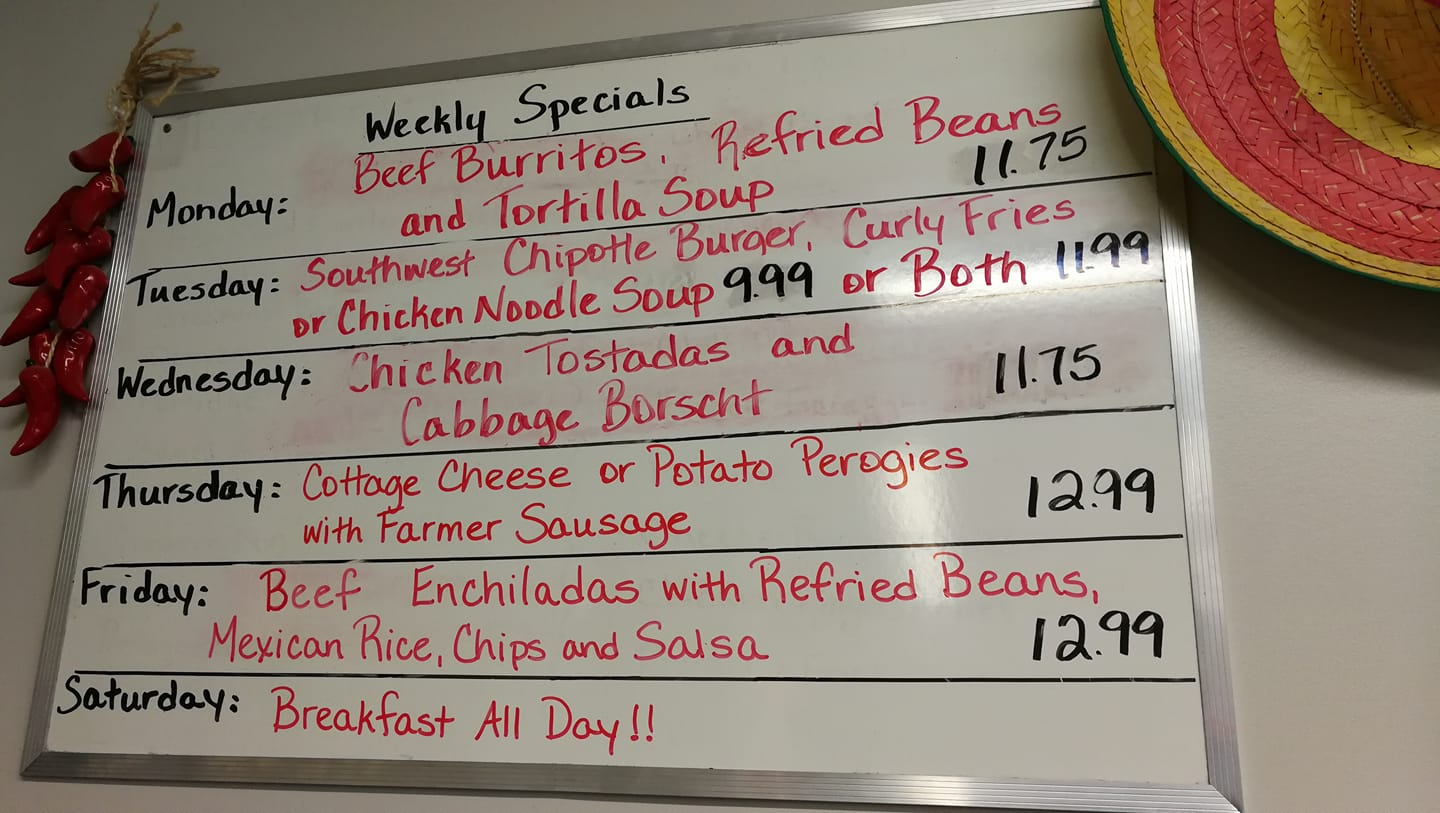 Weekly Specials
Monday: Beef Burritos, Refried Beans
and Tortilla Soup 11.75
Tuesday: Southwest Chipotle Burger, Curly Fries
or Chicken Noodle Soup 9.99 or Both 11.99
Wednesday: Chicken Tostadas and
Cabbage Borscht 11.75
Thursday: Cottage Cheese or Potato Perogies
with Farmer Sausage 12.99
Friday: Beef Enchiladas with Refried Beans,
Mexican Rice, Chips and Salsa 12.99
Saturday: Breakfast All Day!!